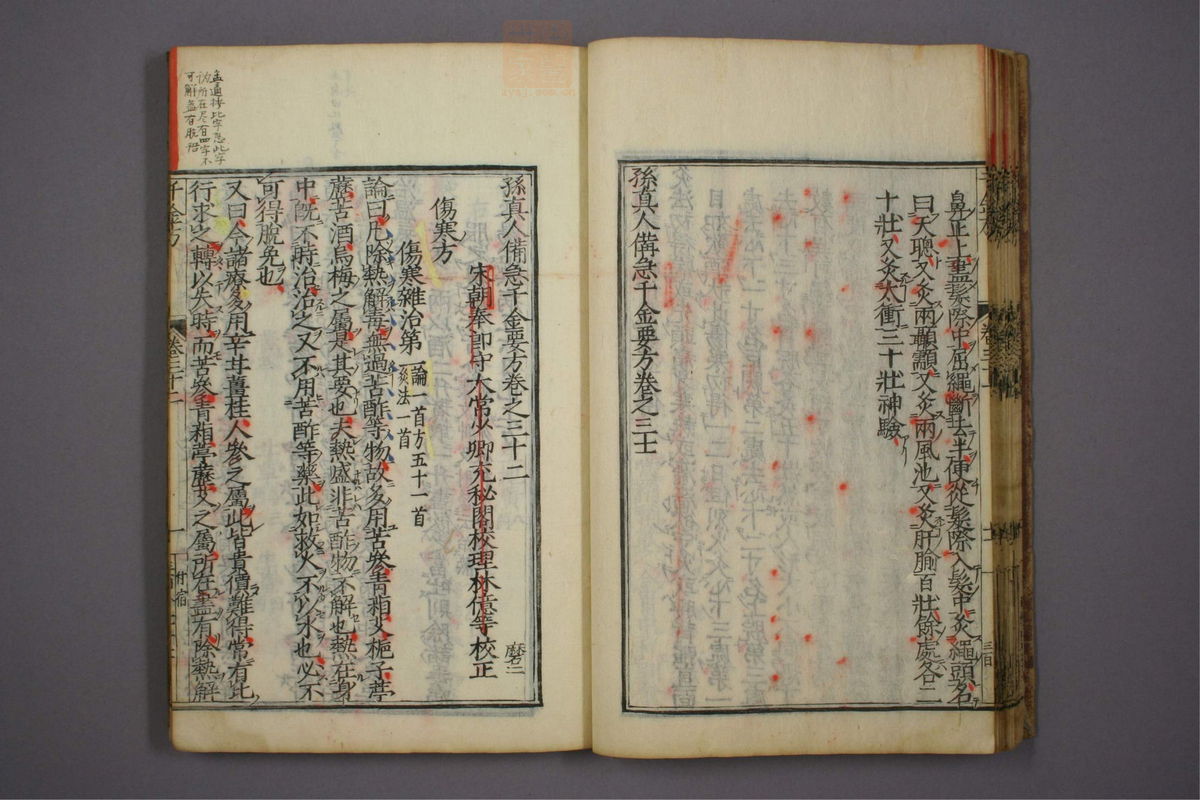 鼻正上盡髮際中屈繩斷去半便從髮際入髮中灸繩頭名
曰天聰又灸兩顳顬又灸兩風池又灸肝腧百壯餘處各二
十壯又灸太衝三十壯神驗
孫真人備急千金要方卷之三十一
孫真人備急千金要方卷之三十二
宋朝奉郎守太常少卿充秘閣校理林億等校正
傷寒方
傷寒雜治第一
論一首方五十一首
灸法一首
論曰凡除熱解毒無過苦酢等物故多用苦參青葙艾梔子葶
藶苦酒烏梅之屬是其要也夫熱盛非苦酢物不解也熱在身
中既不時治治之又不用苦酢等藥此如救火不以水也必不
可得脫免也
又曰今諸療多用辛甘薑桂人參之屬此皆貴價難得常有比
行求之轉以失時而苦參青葙葶藶艾之屬所在盡有除熱解
千金方
卷三十二